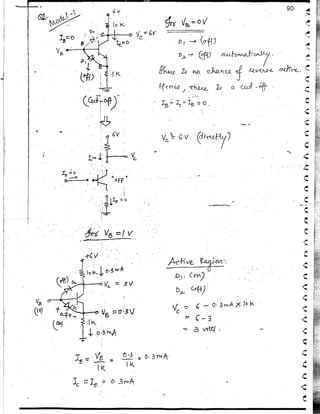 90
Q2. Model-1
6V
10K
Vc = 6V
IB=0
Ic=0
VB
D2
D1
(off)
1K
(Cut-off)
for VB = 0V
D1 → (off)
D2 → (off) automatically.
There is no chance of reverse active.
Hence, there is a cut-off
IB = Ic = IE = 0.
6V
Vc
Ic=0
Vc = 6V (directly)
IB=0
"OFF"
IE=0
for VB = 1V
+6V
10K 0.3mA
(off)
Vc = 3V
VB
(1V)
+
0.7V
-
VE = 0.3V
(on)
1K
0.3mA
Active Region:
D1 (on)
D2 (off)
Vc = 6 - 0.3mA × 10K
= 6-3
= 3 volts.
IE = VE/1K = 0.3/1K = 0.3mA
Ic = IE = 0.3mA